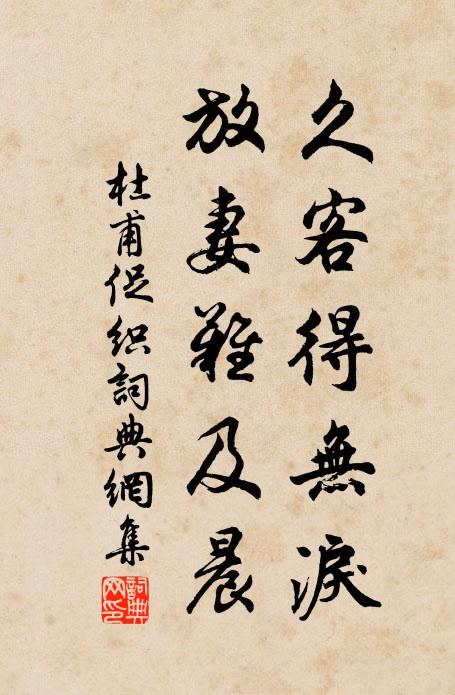 久客得無淚
放妻難及晨
杜甫促织詞典網集
詞典网印